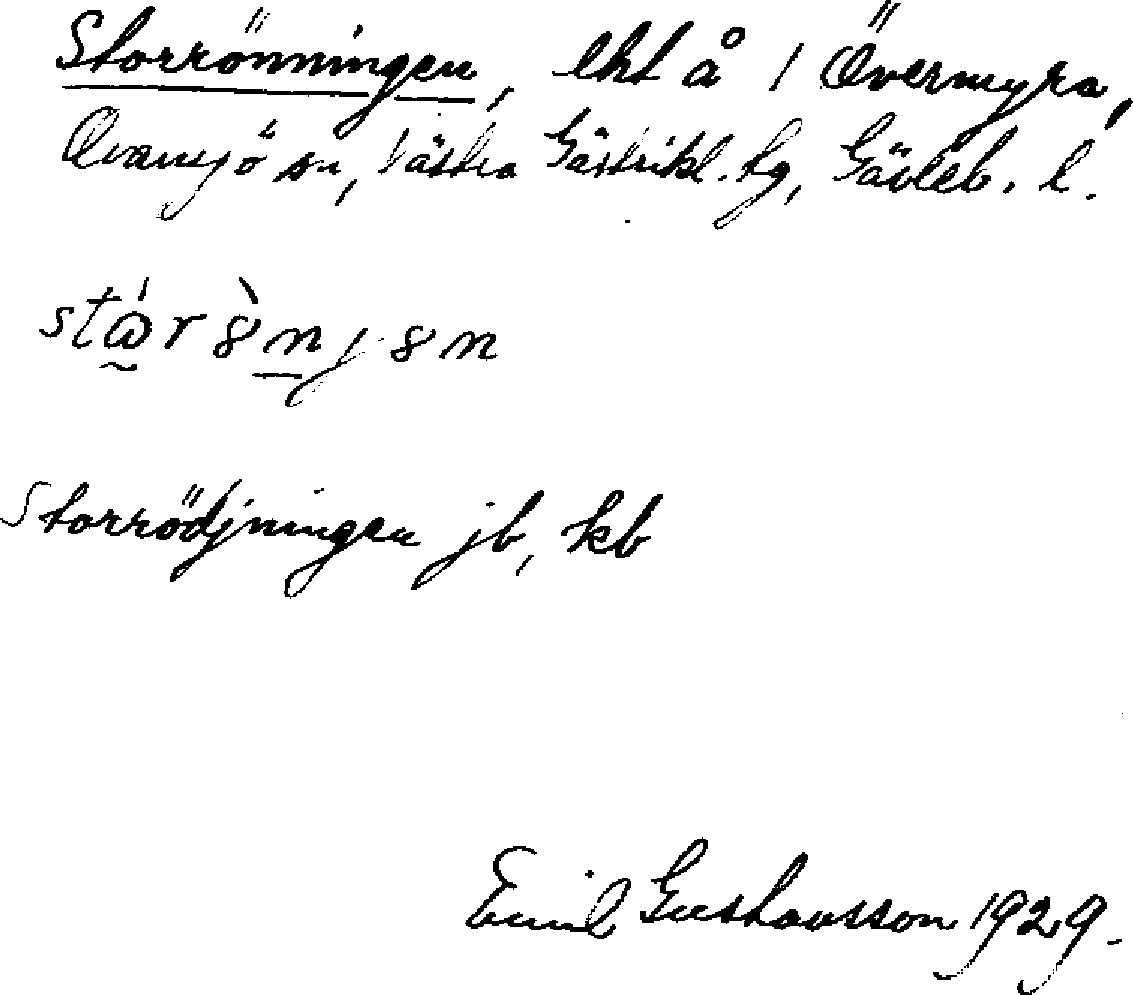 Storrönningen, lht å 1 Övermyra,
Ovansjö sn, Västra Gästrikl. tg, Gävleb. l.
Storrödjningen jb, kb
Emil Gustavsson 1929.